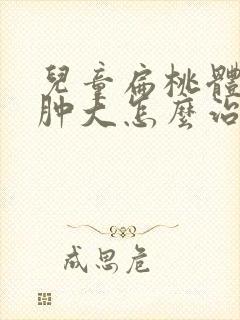 兒童扁桃體
肿大怎麼治
成思危